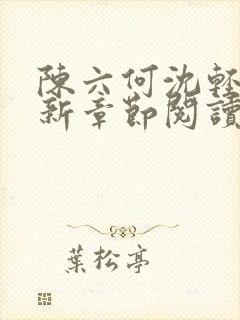 陳六何沈輕
新章節閱讀
葉松亭